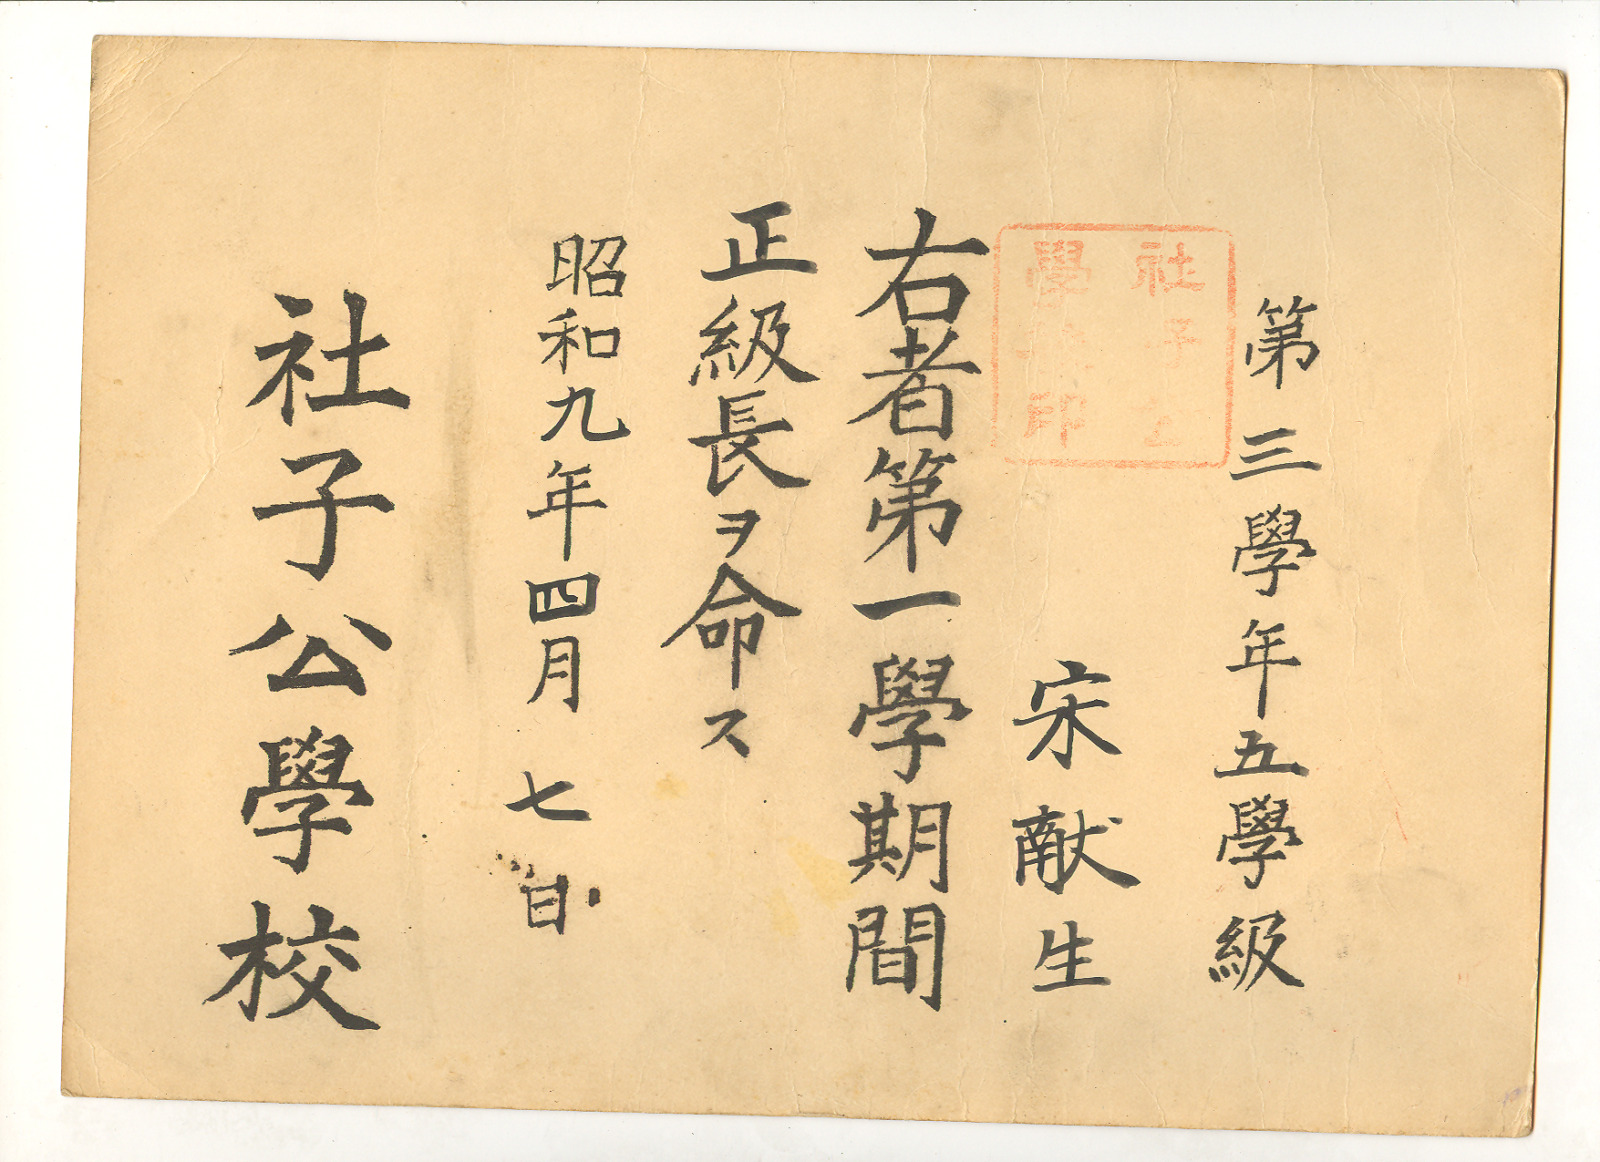 第三學年五學級
宋献生
社子公
學校印
右者第一學期間
正級長ヲ命ス
昭和九年四月七日
社子公學校